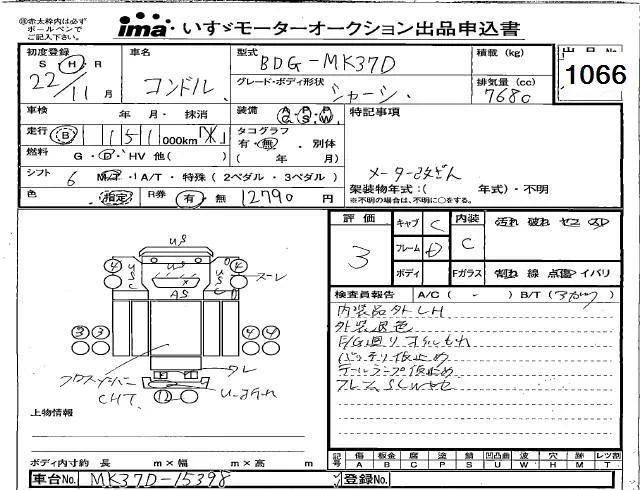 ㊟赤太枠内は必ず
ボールペンで
ご記入下さい。
ima いすゞモーターオークション出品申込書
初度登録 車名 型式 積載 (kg) 出品No.
S・H・R コンドル BDG-MK37D 1066
22/11月 グレード・ボディ形状 シャーシ 排気量 (cc) 7680
車検 年 月・抹消 装備 A/C P/S P/W 特記事項
走行 B 151 000km
タコグラフ 有・無・別体
燃料 G・D・HV 他( ) ( 年 月) メーター改ざん
シフト 6 MT・A/T・特殊 (2ペダル・3ペダル) 架装物年式:( 年式)・不明
※不明の場合は、不明に○をする。
色 指定 R券 有・無 12790円
評価 キャブ C 内装 汚れ 破れ ヤニ スレ
3 フレーム D C
ボディ Fガラス 割れ 線 点傷 イバリ
検査員報告 A/C( - ) B/T(
内装品外LH
外装退色
E/G廻りオイルもれ
バッテリ仮止め
テールランプ仮止め
フレーム
US
US
US
C
AS
US
C
4 4
スーレ
3 3 4 4
クロスメンバー
CHT
タレ
12
上物情報
ボディ内寸約 長 m×幅 m×高 m
記号 傷 板金 腐 塗 錆 凹凸曲 波 穴 跡 レツ割
A B C P S U W H M T
車台No. MK37D-15398 登録No.